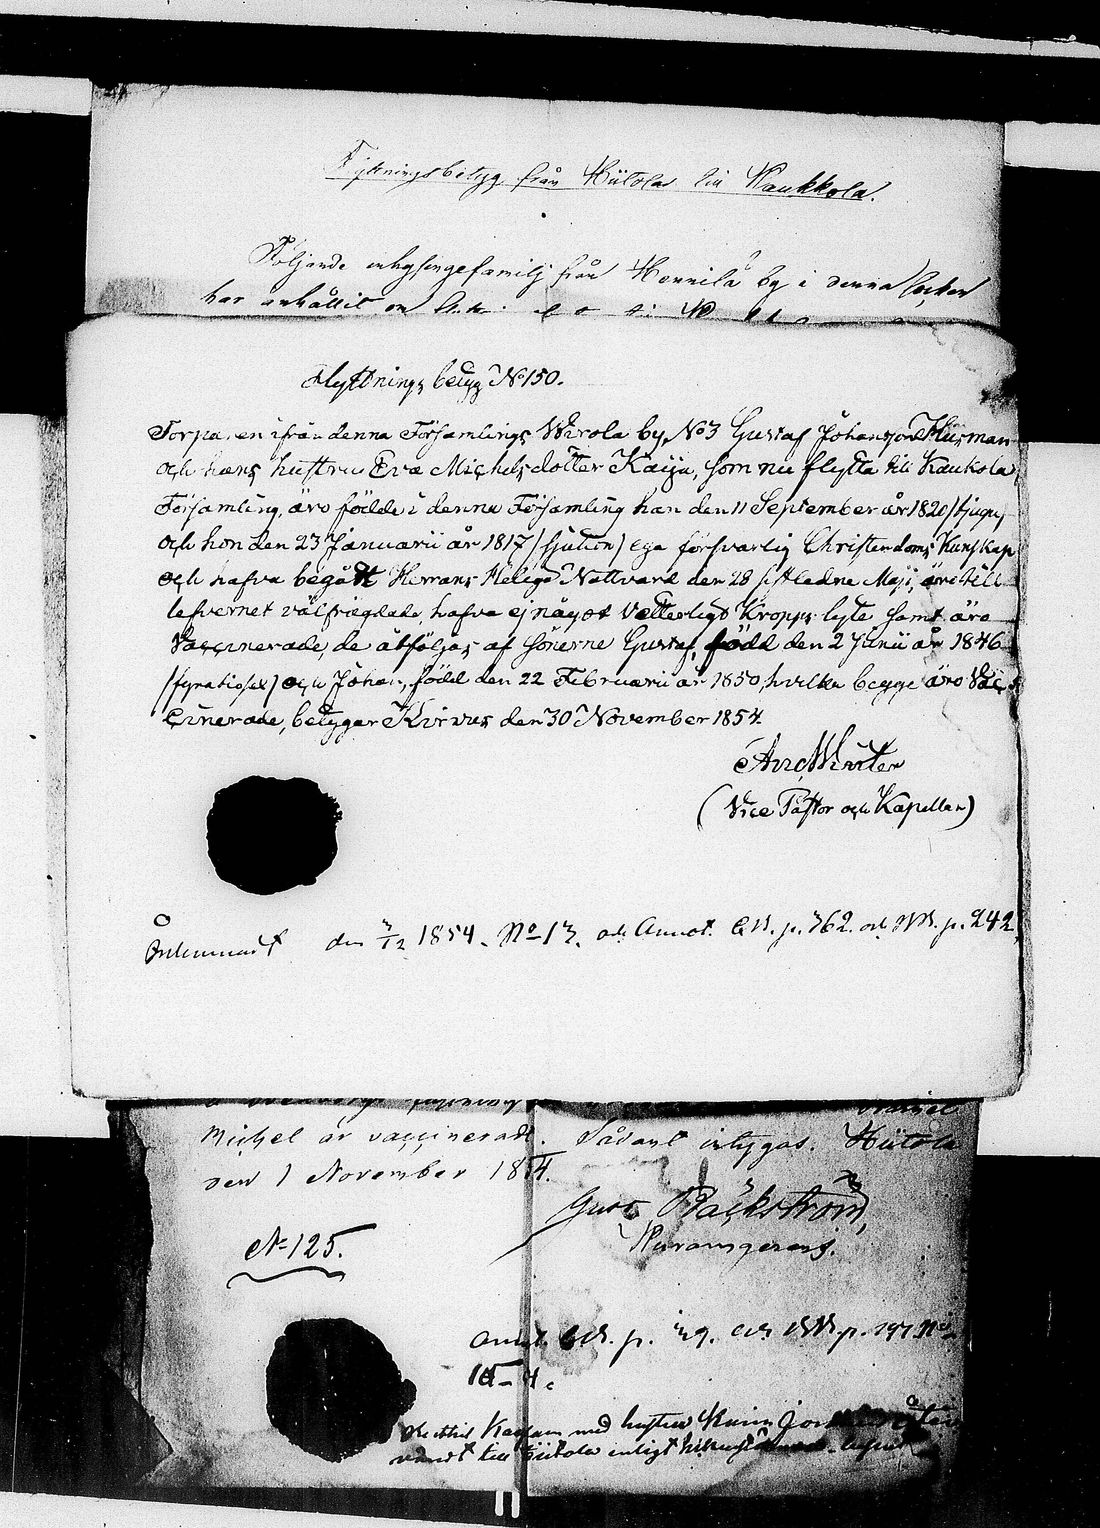 Flyttningsbetyg från Hiitola till Kaukkola.
Följande inhysingefamilj från Hennilä by i denna socken
har anhållit om
Flyttnings betyg No 150.
Torparen ifrån denna Församlings Wirola by No 3 Gustaf Johansson Husman
och hans hustru Eva Michelsdotter Kaiju, som nu flytta till Kaukola
Församling, äro födde i denna Församling han den 11 September år 1820 /tjugu/
och hon den 23 Januarii år 1817 /sjutton/ ega försvarlig Christendoms Kunskap
och hafva begått Herrans Heliga Nattvard den 28 sistledne Maji, äro till
lefvernet välfrägdade, hafva ej något vetterligt Kropps lyte samt äro
Vaccinerade, de åtföljas af sönerne Gustaf, född den 2 Junii år 1846
/fyratiosex/ och Johan, född den 22 Februarii år 1850, hvilka begge äro Vac-
cinerade, betygar Kirvus den 30 November 1854.
And Winter
(Vice Pastor och Kapellan)
Ankommit den 3/12 1854. No 13. och Annot. p. 362. och p. 242
Michel är vaccinerade. Sådant intygas. Hiitola
den 1 November 1854.
Gust Bäckström,
No 125.
p. 29. och p. 197
med hustru
till Hiitola enligt